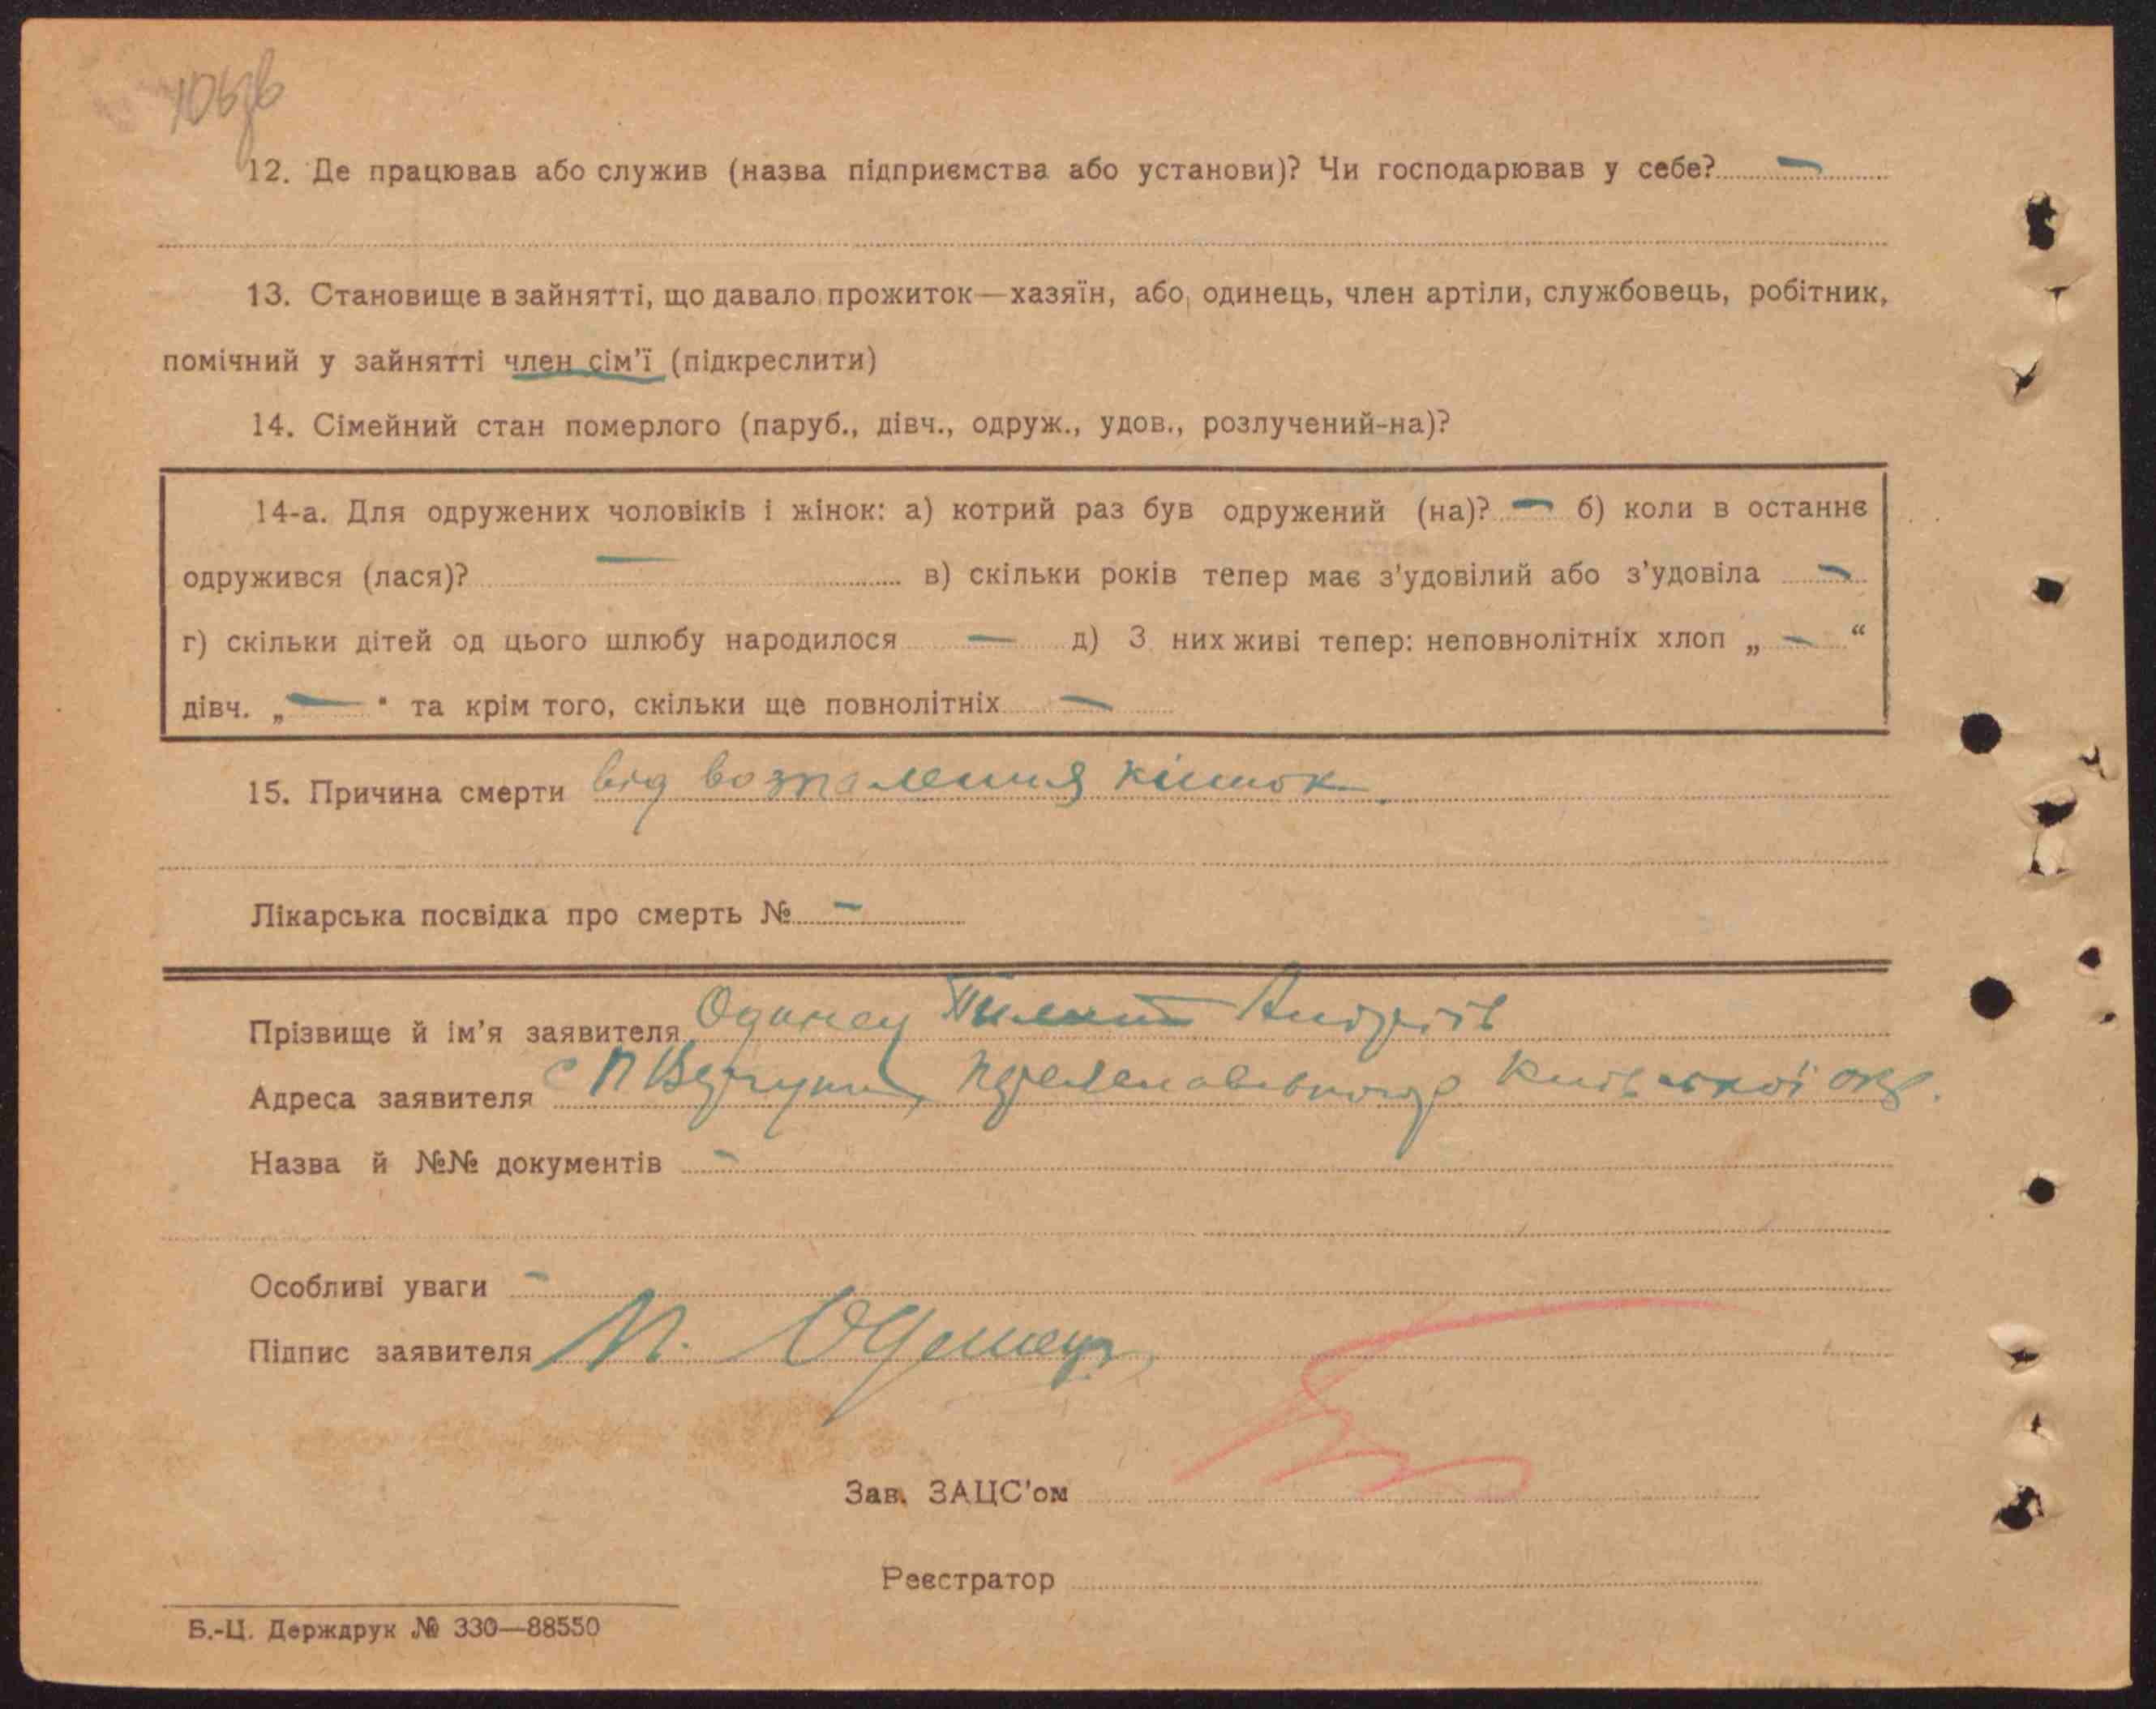 106зв
12. Де працював або служив (назва підприємства або установи)? Чи господарював у себе? —
13. Становище в зайнятті, що давало прожиток—хазяїн, або, одинець, член артіли, службовець, робітник,
помічний у зайнятті член сім'ї (підкреслити)
14. Сімейний стан померлого (паруб., дівч., одруж., удов., розлучений-на)?
14-а. Для одружених чоловіків і жінок: а) котрий раз був одружений (на)? — б) коли в останнє
одружився (лася)? — в) скільки років тепер має з'удовілий або з'удовіла —
г) скільки дітей од цього шлюбу народилося — д) З них живі тепер: неповнолітніх хлоп „ — “
дівч. „ — “ та крім того, скільки ще повнолітніх —
15. Причина смерти від возпаления кишок
Лікарська посвідка про смерть № —
Прізвище й ім'я заявителя Одинец Пилип Андріїв
Адреса заявителя с П Київської окр.
Назва й №№ документів —
Особливі уваги —
Підпис заявителя Одинец
Зав. ЗАЦС'ом
Реєстратор
Б.-Ц. Держдрук № 330—88550